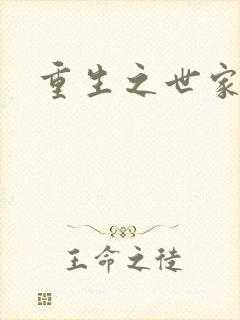 重生之世家
王命之徒